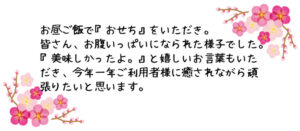 お昼ご飯で『おせち』をいただき。
皆さん、お腹いっぱいになられた様子でした。
『美味しかったよ。』と嬉しいお言葉もいた
だき、今年一年ご利用者様に癒されながら頑
張りたいと思います。